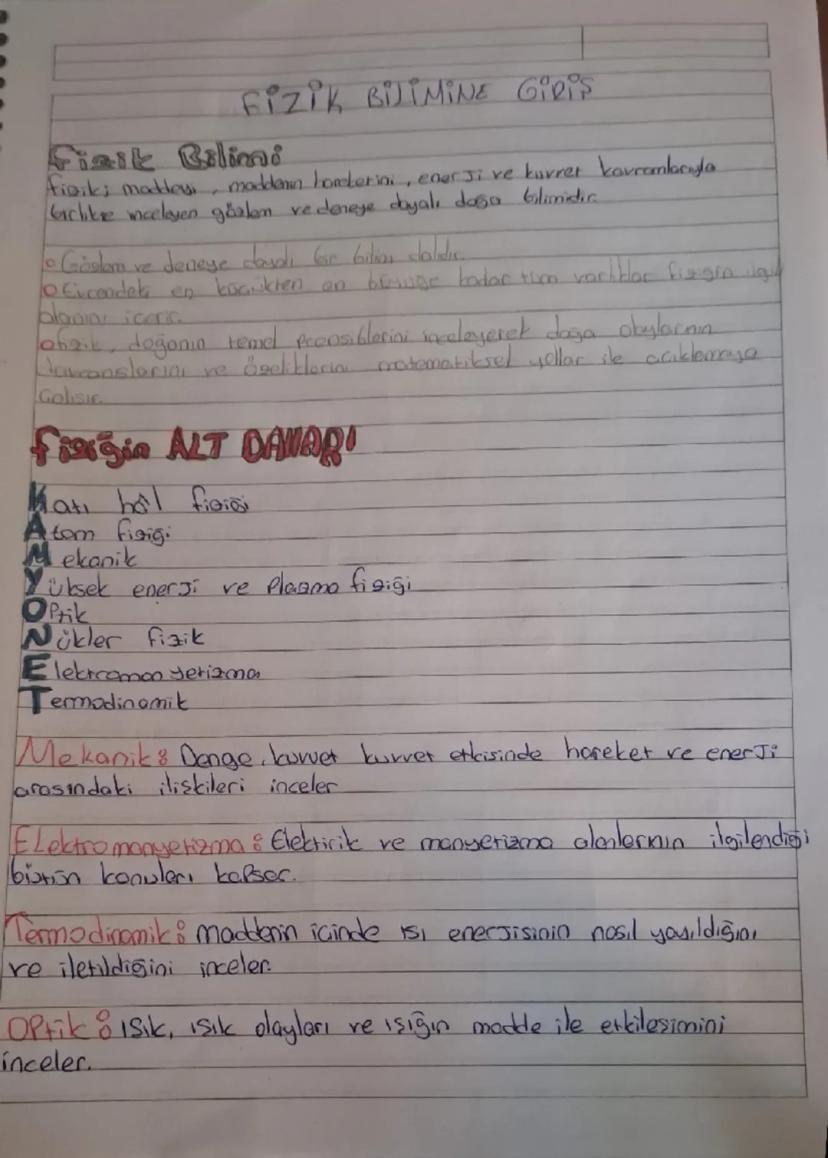 FİZİK BİLİMİNE GİRİŞ
Fizik Bilimi
fizik; maddeyi, maddenin hareketlerini, enerji ve kuvvet kavramlarıyla
birlikte inceleyen gözlem ve deneye dayalı doğa bilimidir.
Gözlem ve deneye dayalı bir bilim dalıdır.
Evrendeki en küçükten en büyüğe kadar tüm varlıklar fiziğin ilgi
alanını içerir.
fizik, doğanın temel prensiblerini inceleyerek doğa olaylarının
davranışlarını ve özelliklerini matematiksel yollar ile açıklamaya
Çalışır.
fiziğin ALT DALLARI
Katı hâl fiziği
Atom fiziği
Mekanik
Yüksek enerji ve Plazma fiziği
OPtik
Nükler fizik
Elektromanyetizma
Termodinamik
Mekanik: Denge, kuvvet kuvvet etkisinde hareket ve enerji
arasındaki ilişkileri inceler
Elektromanyetizma: Elektirik ve manyetizma alanlarının ilgilendiği
bütün konuları kapsar.
Termodinamik: maddenin içinde ısı enerjisinin nasıl yayıldığını
ve iletildiğini inceler.
OPtik: ışık, ışık olayları ve ışığın madde ile etkileşimini
inceler.